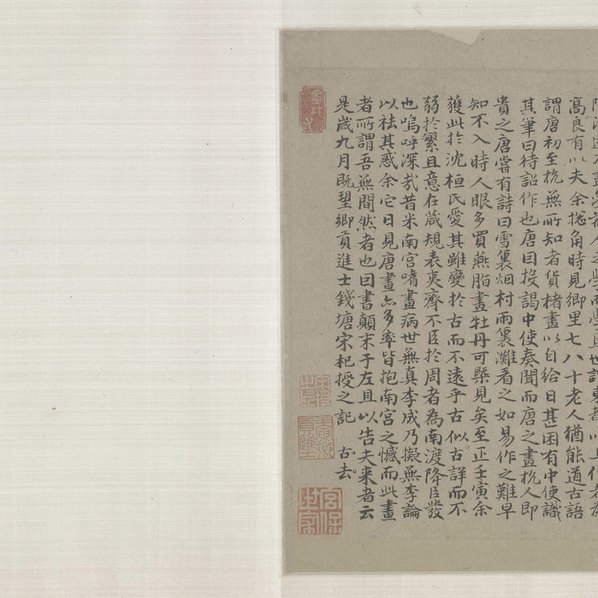 高良有以夫余總角時見鄉里七八十老人猶能道古語
謂唐初至杭無所知者貨楮畫以自給日甚困有中使識
其筆曰待詔作也唐因投謁中使奏聞而唐之畫杭人即
貴之唐嘗有詩曰雪裏烟村雨裏灘看之如易作之難早
知不入時人眼多買燕脂畫牡丹可槩見矣至正壬寅余
獲此於沈桓氏愛其雖變於古而不遠乎古似古詳而不
弱於繁且意在箴規表夷齊不臣於周者為南渡降臣發
也嗚呼深哉昔米南宮嗜畫病世無真李成乃擬無李論
以袪其惑余它日見唐畫亦多率皆抱南宮之憾而此畫
者所謂吾無間然者也因書顛末于左且以告夫来者云
是歲九月既望鄉貢進士錢塘宋杞授之記 古去